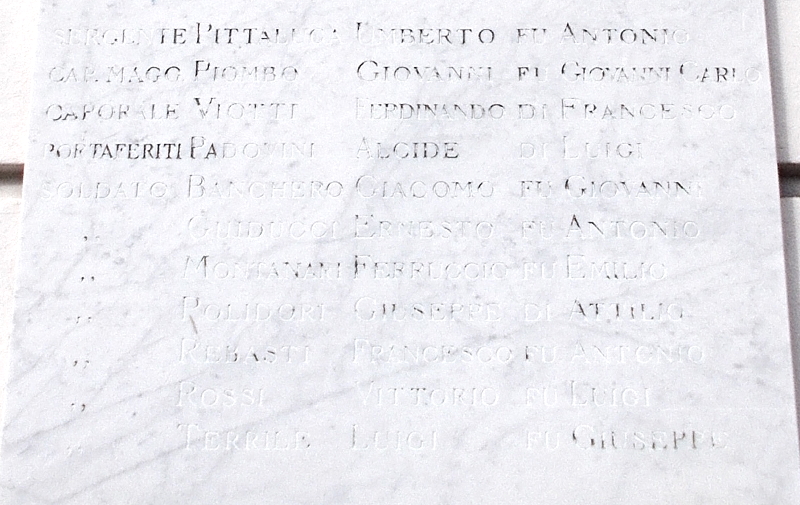 SERGENTE PITTALUGA UMBERTO FU ANTONIO
CAP. MAGG. PIOMBO GIOVANNI FU GIOVANNI CARLO
CAPORALE VIOTTI FERDINANDO DI FRANCESCO
PORTAFERITI PADOVINI ALCIDE DI LUIGI
SOLDATO BANCHERO GIACOMO FU GIOVANNI
,, GUIDUCCI ERNESTO FU ANTONIO
,, MONTANARI FERRUCCIO FU EMILIO
,, POLIDORI GIUSEPPE DI ATTILIO
,, REBASTI FRANCESCO FU ANTONIO
,, ROSSI VITTORIO FU LUIGI
,, TERRILE LUIGI FU GIUSEPPE